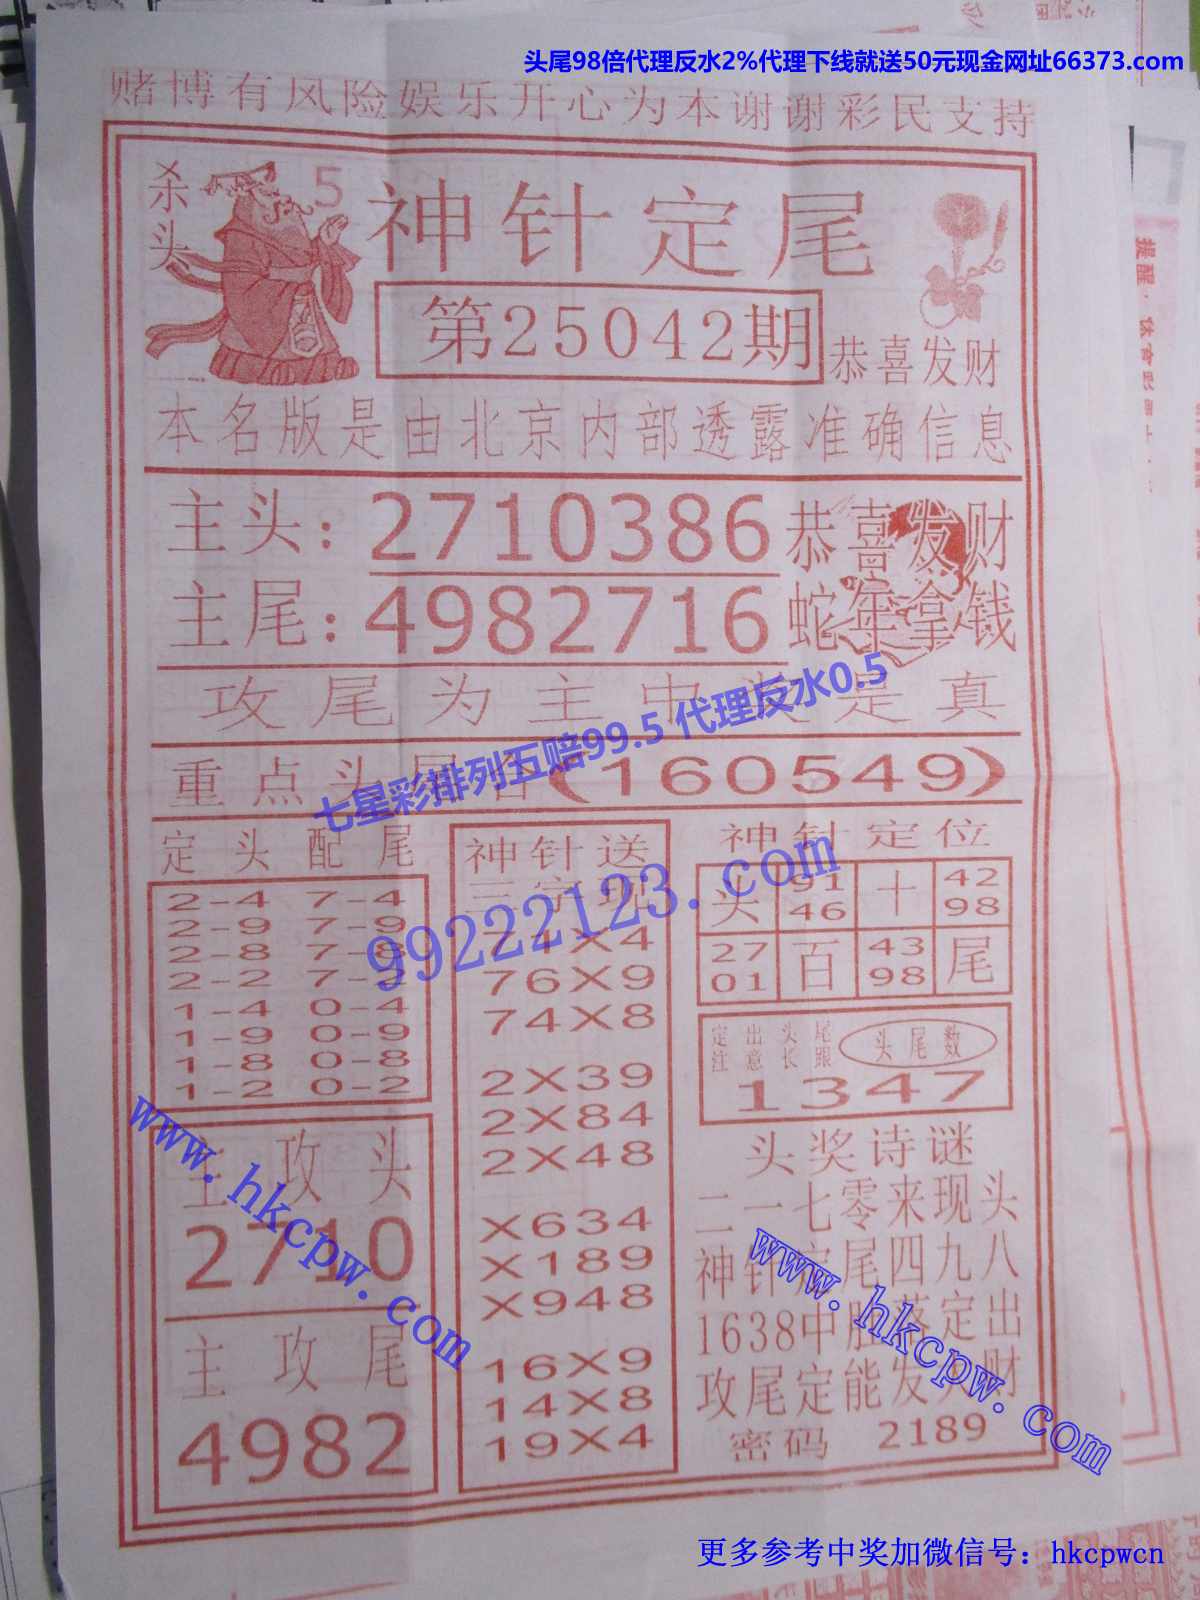 头尾98倍代理反水2%代理下线就送50元现金网址66373.com
赌博有风险娱乐开心为本谢谢彩民支持
杀头
5
神针定尾
第25042期
恭喜发财
本名版是由北京内部透露准确信息
主头:2710386
恭喜发财
主尾:4982716
蛇年拿钱
攻尾为主中是真
七星彩排列五赔99.5 代理反水0.5
重点头(160549)
定头配尾
2-4 7-4
2-9 7-9
2-8 7-8
2-2 7-2
1-4 0-4
1-9 0-9
1-8 0-8
1-2 0-2
神针送
三定现
99222123.com
X4
76X9
74X8
2X39
2X84
2X48
X634
X189
X948
16X9
14X8
19X4
神针定位
头 9146 十 4298
2701 百 4398 尾
定出头尾
注意长跟
头尾数
1347
主攻头
2710
www.hkcpw.com
主攻尾
4982
头奖诗谜
二一七零来现头
神针定尾四九八
1638中胆落定出
攻尾定能发大财
密码 2189
www.hkcpw.com
更多参考中奖加微信号：hkcpwcn
提醒